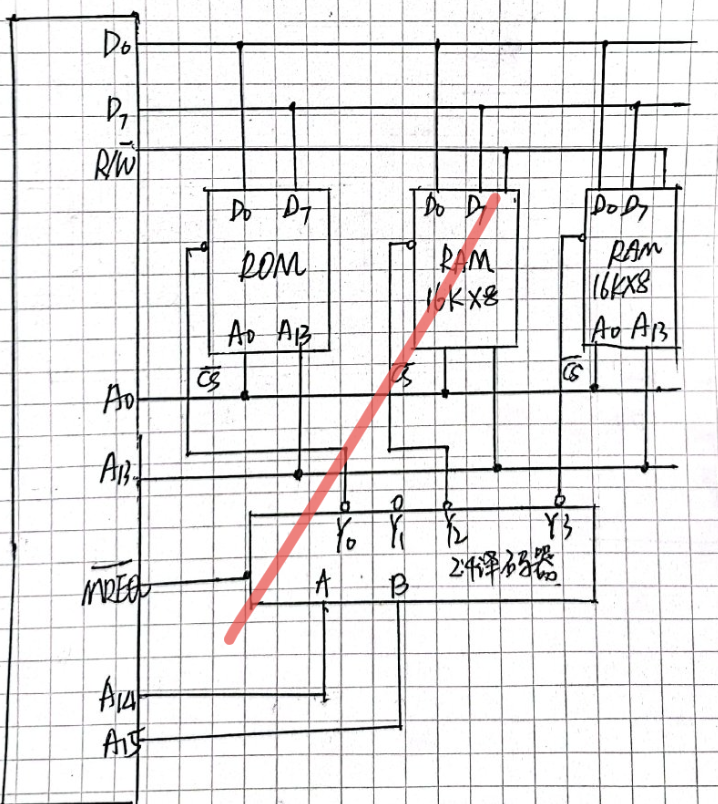 D0
D7
R/W̅
D0 D7
ROM
A0 A13
C̅S̅
D0 D7
RAM
16K×8
C̅S̅
D0 D7
RAM
16K×8
A0 A13
C̅S̅
A0
A13
Y0 Y1 Y2 Y3
2:4译码器
M̅R̅E̅Q̅
A B
A14
A15